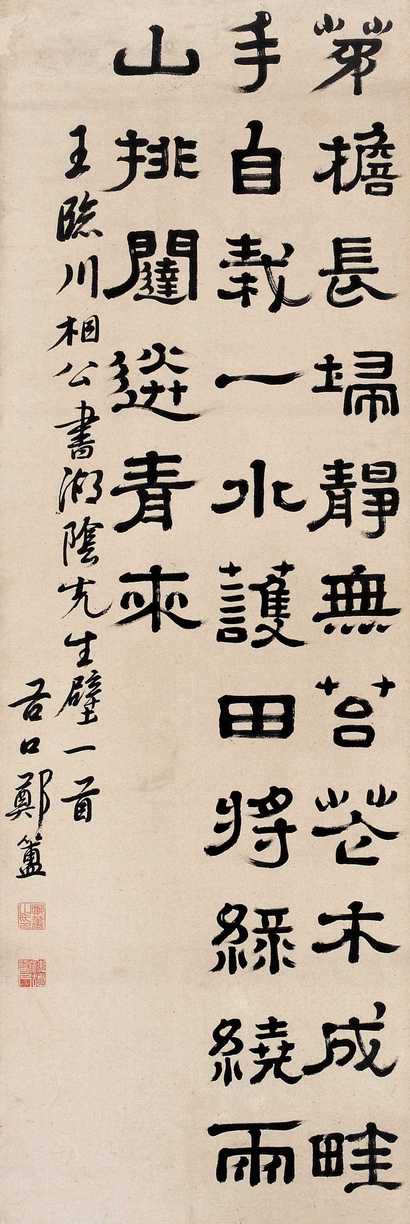 茅檐長埽靜無苔花木成畦
手自栽一水護田將綠繞兩
山排闥送青來
王臨川相公書湖陰先生壁一首
谷口鄭簠